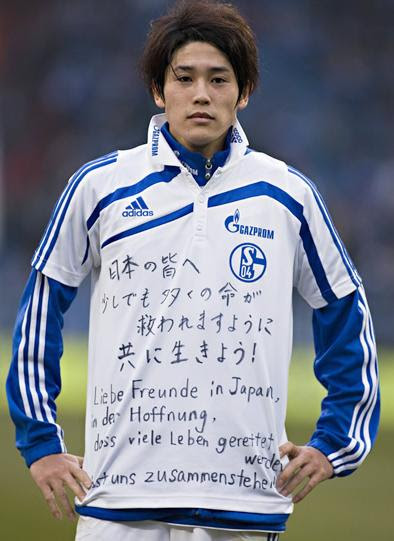 GAZPROM
adidas
GAZPROM
S04
日本の皆へ
少しでも多くの命が
救われますように
共に生きよう!
Liebe Freunde in Japan,
in der Hoffnung,
dass viele Leben gerettet
werden
uns zusammenstehe